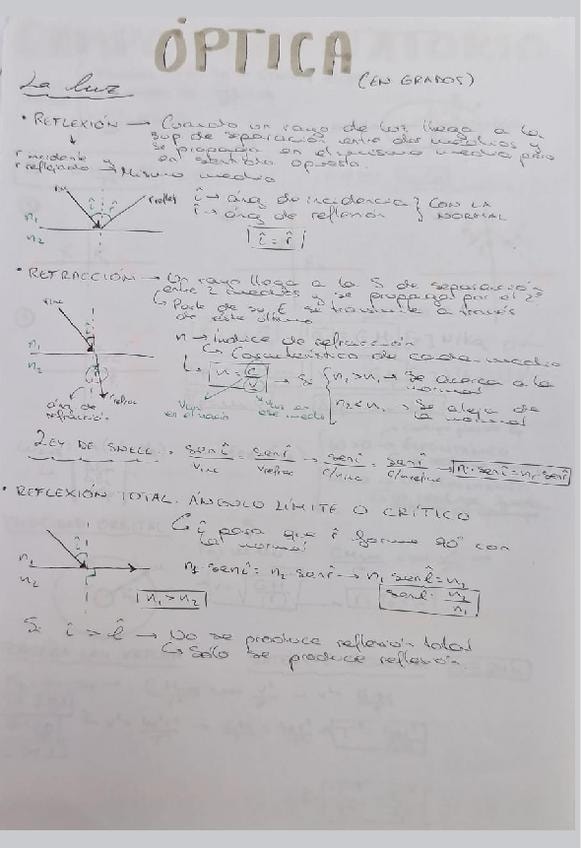 ÓPTICA
(EN GRADOS)
La luz
• REFLEXIÓN → Cuando un rayo de luz llega a la
sup de separación entre dos medios y
se propaga en el mismo medio pero
en sentido opuesto.
r incidente y
r reflejado → Mismo medio
r inc
r reflej
î r̂
n₁
n₂
î → áng de incidencia } CON LA
r̂ → áng de reflexión } NORMAL
î = r̂
• REFRACCIÓN → Un rayo llega a la S de separación
entre 2 medios y se propaga por el 2º
↳ Parte de su E se transmite a través
de este último
r inc
î
n₁
n₂
r refrac
áng de
refracción
n → índice de refracción
↳ Característico de cada medio
↳ n = c/v → Si { n₂ > n₁ → Se acerca a la
normal
n₂ < n₁ → Se aleja de
la normal
V luz
en el vacío
V luz en
ese medio
LEY DE SNELL. sen î / v inc = sen r̂ / v refrac → sen î / c/n inc = sen r̂ / c/n refrac → n · sen î = nr · sen r̂
• REFLEXIÓN TOTAL. ÁNGULO LÍMITE O CRÍTICO
↳ î para que r̂ forme 90° con
la normal
î
n₁
n₂
n₁ · sen î = n₂ · sen r̂ → n₁ sen l̂ = n₂
n₁ > n₂
sen l̂ = n₂/n₁
Si î > l̂ → No se produce reflexión total
↳ Sólo se produce reflexión.